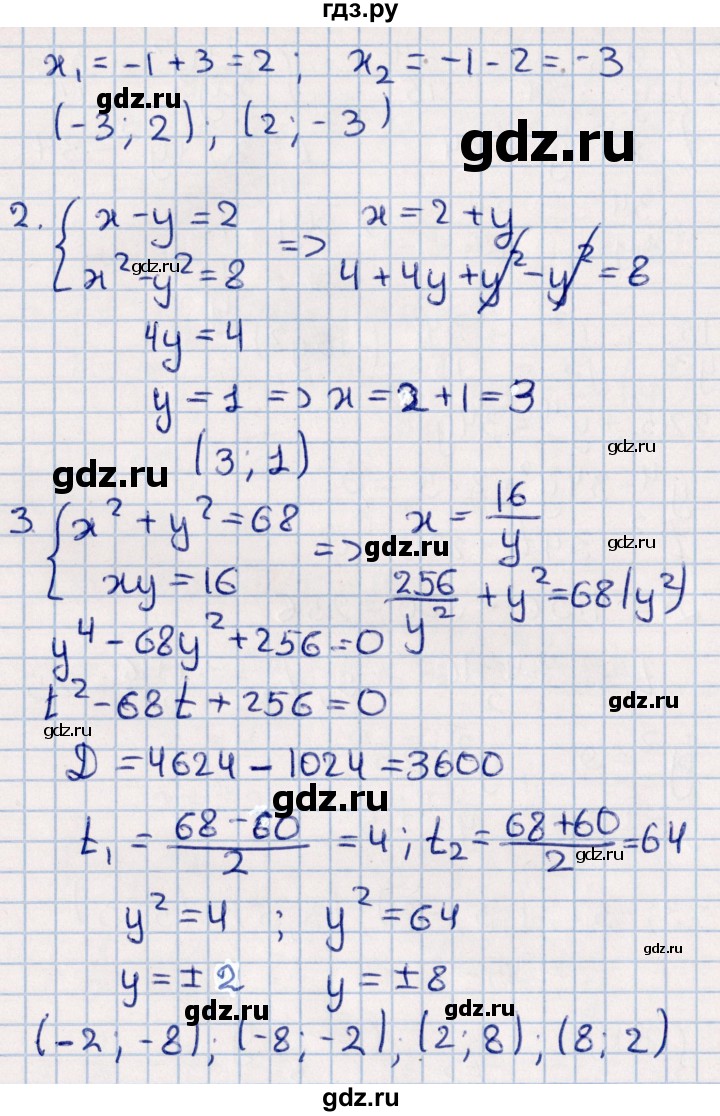 гдз.ру
x₁ = -1 + 3 = 2 ; x₂ = -1 - 2 = -3
gdz.ru
(-3 ; 2) ; (2 ; -3)
gdz.ru
2. { x - y = 2 => x = 2 + y
x² - y² = 8 4 + 4y + y² - y² = 8
gdz.ru
4y = 4
y = 1 => x = 2 + 1 = 3
gdz.ru
(3 ; 1)
gdz.ru
3. { x² + y² = 68 => x = 16/y
gdz.ru gdz.ru
xy = 16 256/y² + y² = 68 (y²)
y⁴ - 68y² + 256 = 0
t² - 68t + 256 = 0
gdz.ru gdz.ru
D = 4624 - 1024 = 3600
gdz.ru
t₁ = (68 - 60)/2 = 4 ; t₂ = (68 + 60)/2 = 64
gdz.ru
y² = 4 ; y² = 64
gdz.ru
y = ± 2 y = ± 8
gdz.ru gdz.ru
(-2 ; -8) ; (-8 ; -2) ; (2 ; 8) ; (8 ; 2)
gdz.ru